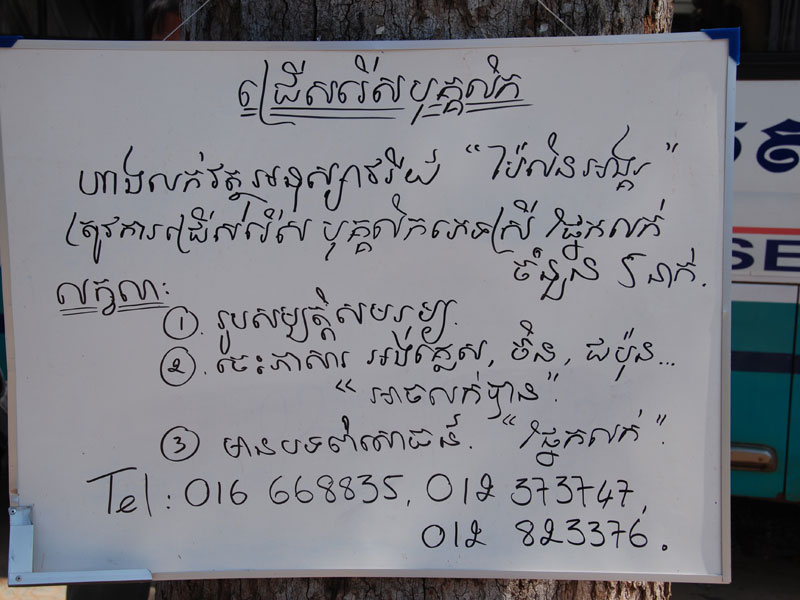 ជ្រើសរើសបុគ្គលិក
ហាងលក់វត្ថុអនុស្សាវរីយ៍ “ប៉ៃលិនអង្គរ”
ត្រូវការជ្រើសរើស បុគ្គលិកភេទស្រី ផ្នែកលក់
ចំនួន ៥ នាក់.
លក្ខណៈ
1. រូបសម្បត្តិសមរម្យ.
2. ចេះភាសារ អង់គ្លេស, ចិន, ជប៉ុន...
“អាចលក់បាន”.
3 មានបទពិសោធន៍. “ផ្នែកលក់”.
Tel: 016 668835, 012 373747,
012 823376.
SE